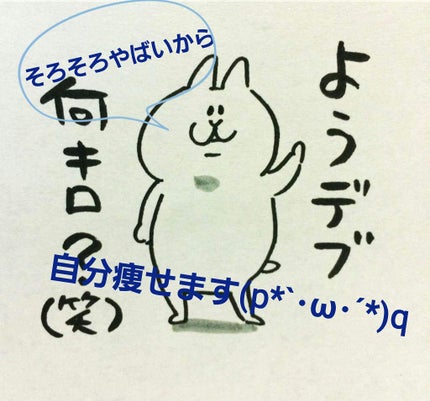 ようデブ
何キロ?
(笑)
そろそろやばいから
自分痩せます(p*`･ω･´*)q